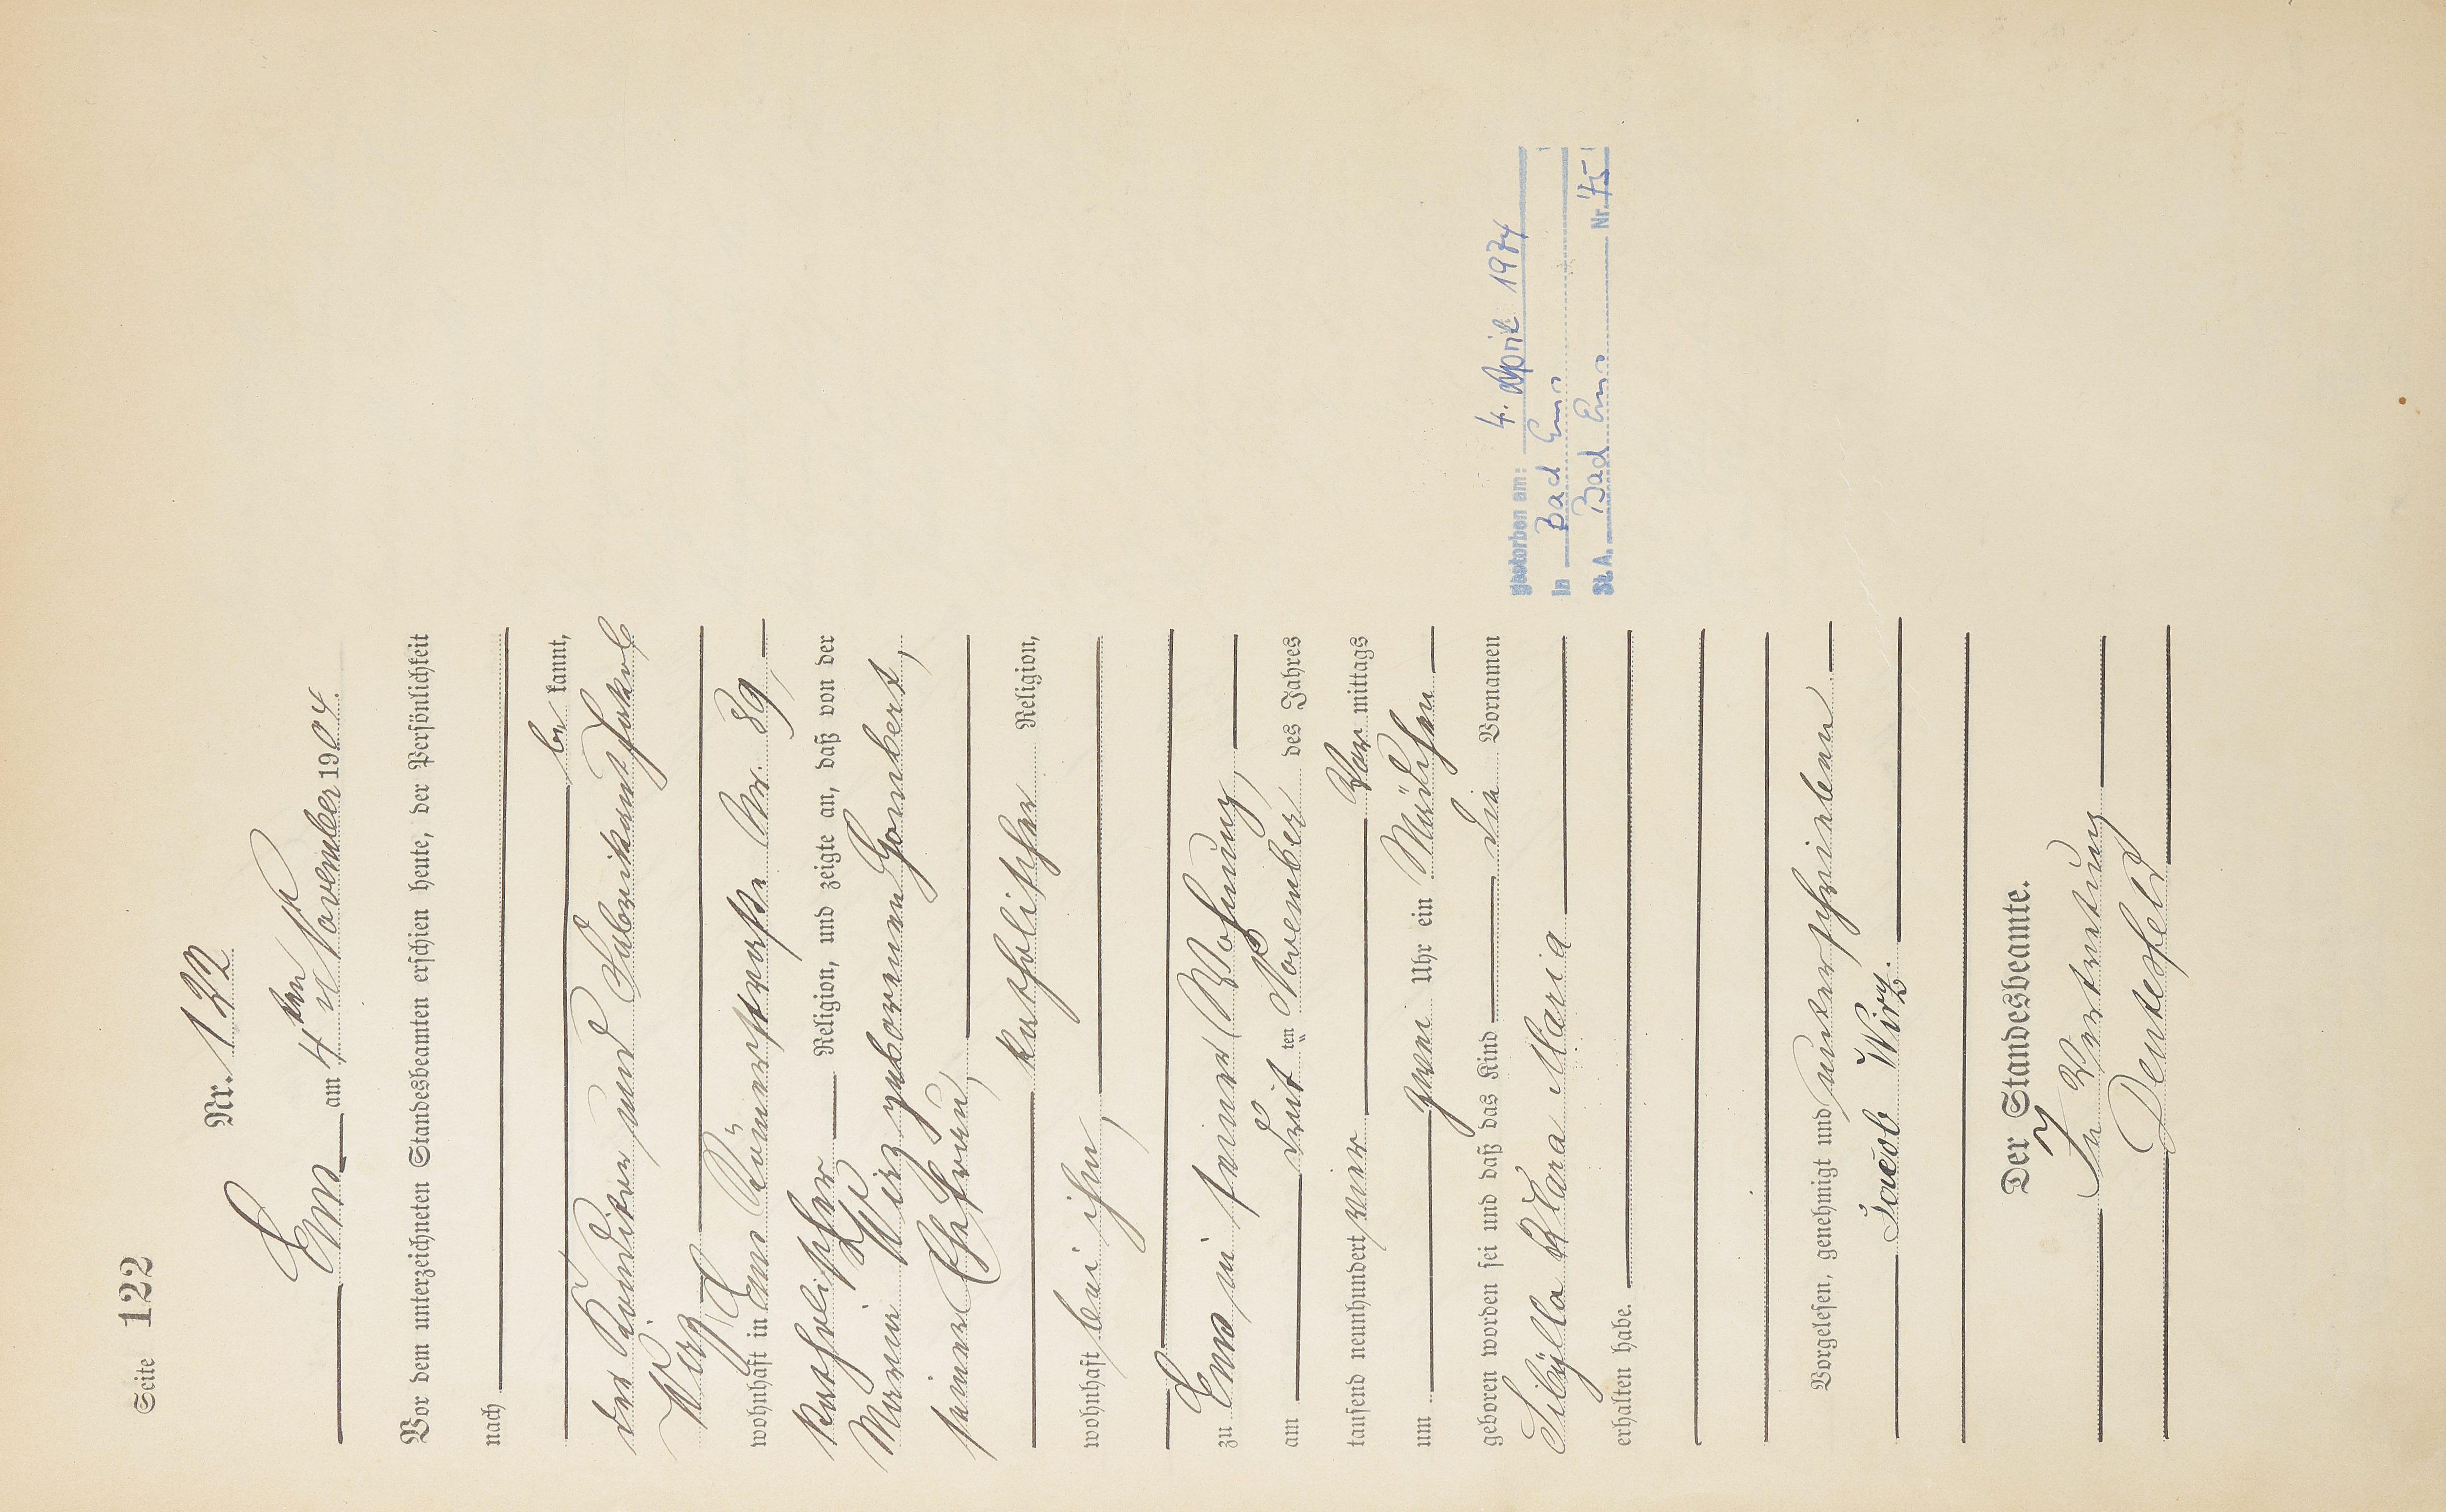 Seite 122
Nr. 122
Ems am 4ten November 1904.
Vor dem unterzeichneten Standesbeamten erschien heute, der Persönlichkeit
nach
be kannt,
der Konditor und Fabrikant Jakob
Wirz
wohnhaft in Ems Römerstraße Nr. 89,
katholischer Religion, und zeigte an, daß von der
Maria Wirz geborenen Gombert,
seiner Ehefrau,
katholischer Religion,
wohnhaft bei ihm,
zu Ems in seiner Wohnung,
am Drit ten November des Jahres
tausend neunhundert vier Vor mittags
um zwei Uhr ein Mädchen
geboren worden sei und daß das Kind die Vornamen
Sibÿlla Klara Maria
erhalten habe.
Vorgelesen, genehmigt und unterschrieben
Jacob Wirz.
Der Standesbeamte.
In Vertretung
gestorben am: 4. April 1974
in Bad Ems
St. A. Bad Ems Nr. 75